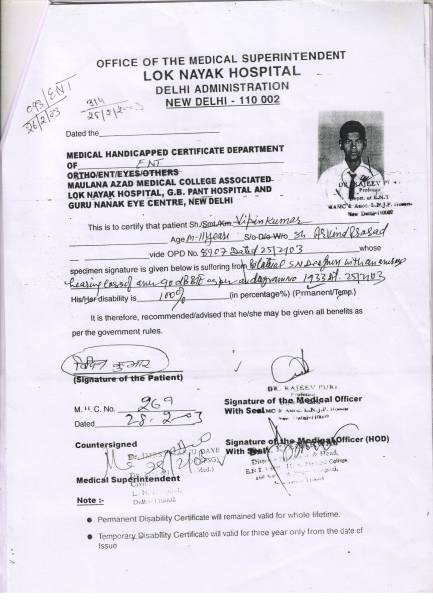 OFFICE OF THE MEDICAL SUPERINTENDENT
LOK NAYAK HOSPITAL
DELHI ADMINISTRATION
NEW DELHI - 110 002
093/ENT
26/2/03
314
Dated the
MEDICAL HANDICAPPED CERTIFICATE DEPARTMENT
OF ENT
ORTHO/ENT/EYES/OTHERS
MAULANA AZAD MEDICAL COLLEGE ASSOCIATED
LOK NAYAK HOSPITAL, G.B. PANT HOSPITAL AND
GURU NANAK EYE CENTRE, NEW DELHI
Professor
Deptt. of E.N.T
New Delhi-110002
This is to certify that patient Sh./Smt./Km. Vipin Kumar
Age S/o D/o W/o Sh. Arvind Prasad
vide OPD No. 8907 Dated 25/2/03 whose
specimen signature is given below is suffering from Bilateral
hearing loss of as per audiogramme 1933 dt. 25/2/03
His/Her disability is 100% (in percentage%) (Prmanent/Temp.)
It is therefore, recommended/advised that he/she may be given all benefits as
per the government rules.
विपिन कुमार
(Signature of the Patient)
DR. RAJEEV PURI
Professor
M. H. C. No. 269
Signature of the Medical Officer
With Seal
Dated 28.2.03
New Delhi-110002
Countersigned
Signature of the Medical Officer (HOD)
With Seal
Medical Superintendent
Note :-
● Permanent Disability Certificate will remained valid for whole lifetime.
● Temporary Disability Certificate will valid for three year only from the date of
Issue